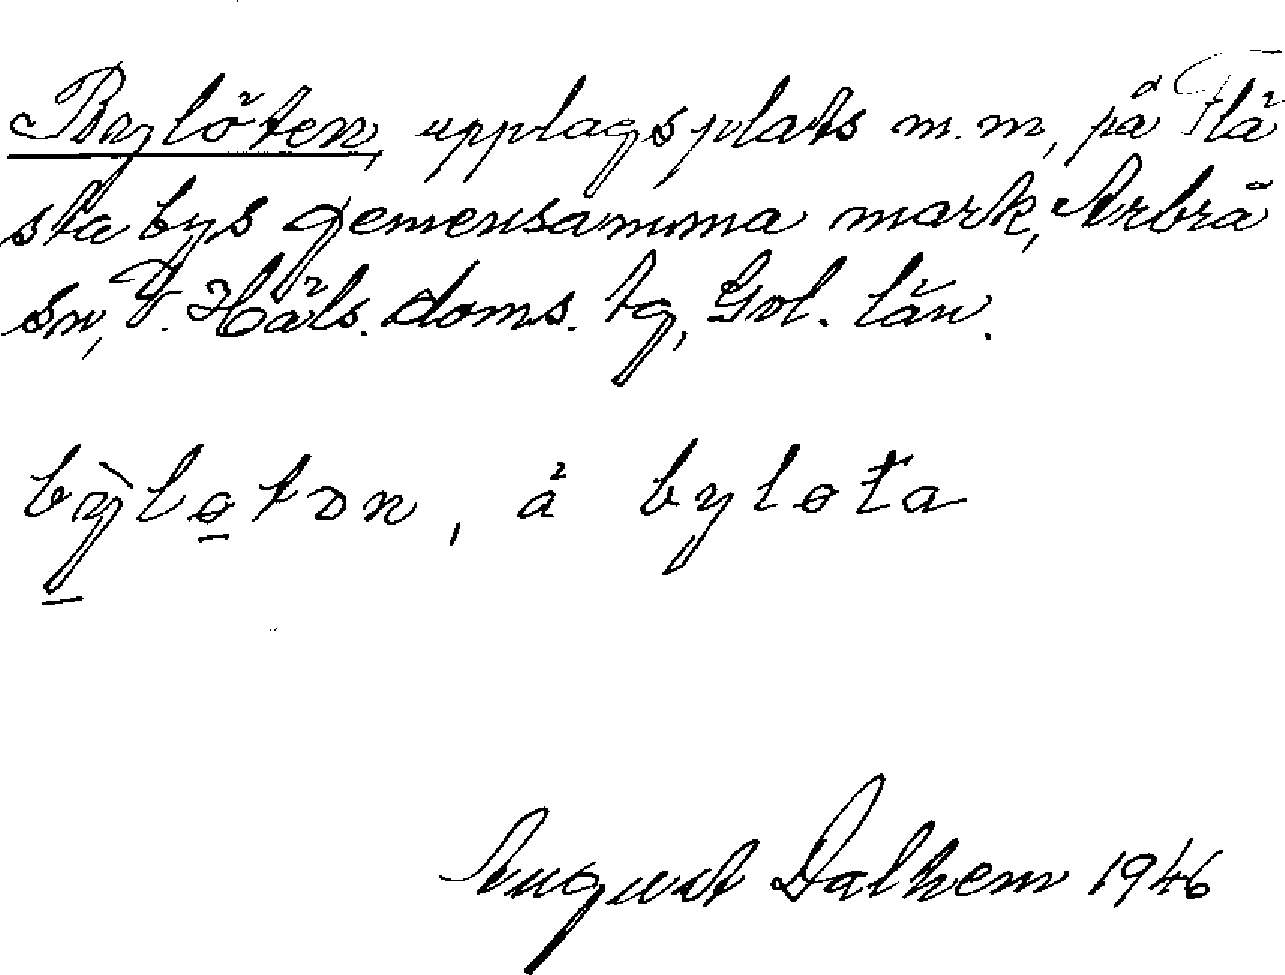 Bylöten, upplagsplats m.m, på Flä
sta bys gemensamma mark, Arbrå
sn, V. Häls. doms. tg, Gvl. län.
bỳlotən, å bylota
August Dalhem 1946